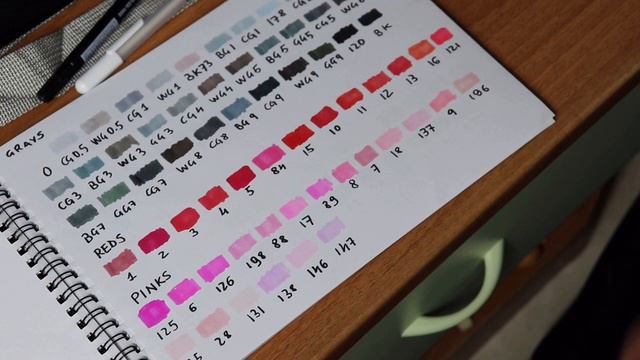 GRAYS
0 CG0.5 WG0.5 CG1 WG1 BK73 BG1 CG1 178
CG3 BG3 WG3 GG3 CG4 WG4 WG5 BG5 GG5 CG5 WG6
BG7 GG7 CG7 WG8 CG8 BG9 CG9 WG9 GG9 120 BK
REDS
1 2 3 4 5 84 15 10 11 12 13 16 121
PINKS
125 6 126 198 88 17 89 8 7 18 137 9 196
28 131 138 146 147